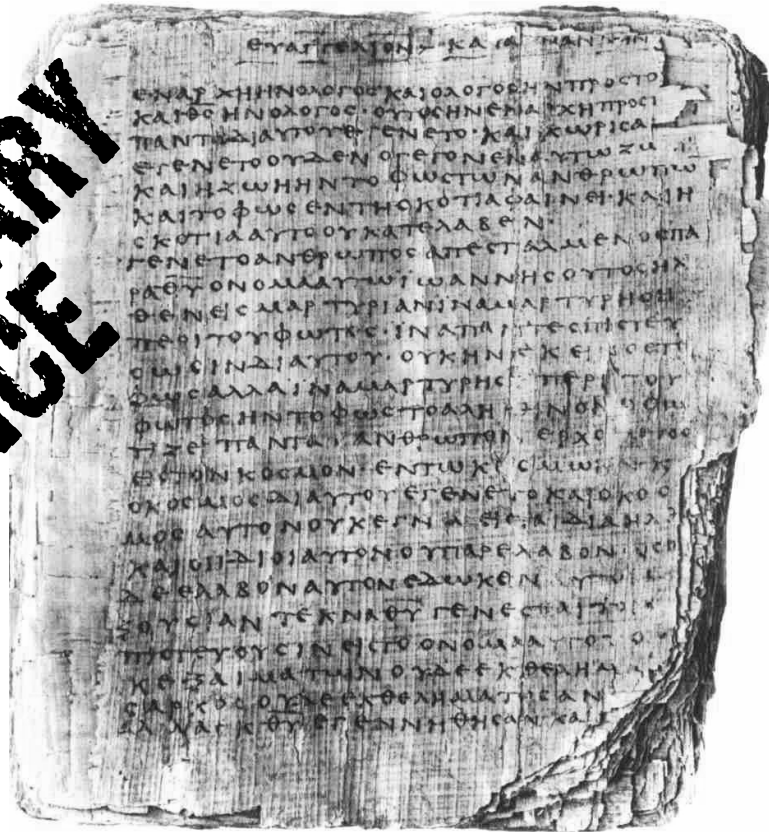 ΕΥΑΓΓΕΛΙΟΝ ΚΑΤΑ
ΕΝΑΡΧΗΗΝΟΛΟΓΟϹΚΑΙΟΛΟΓΟϹΗΝΠΡΟϹΤΟ
ΚΑΙΘ̅Ϲ̅ΗΝΟΛΟΓΟϹ·ΟΥΤΟϹΗΝΕΝΑΡΧΗΠΡΟϹ
ΠΑΝΤΑΔΙΑΥΤΟΥΕΓΕΝΕΤΟ·ΚΑΙΧΩΡΙϹΑ
ΕΓΕΝΕΤΟΟΥΔΕΝΟΓΕΓΟΝΕΝΕΝΑΥΤΩΖΩ
ΚΑΙΗΖΩΗΗΝΤΟΦΩϹΤΩΝΑΝΘΡΩΠΩ
ΚΑΙΤΟΦΩϹΕΝΤΗϹΚΟΤΙΑΦΑΙΝΕΙ·ΚΑΙΗ
ϹΚΟΤΙΑΑΥΤΟΟΥΚΑΤΕΛΑΒΕΝ·
ΕΓΕΝΕΤΟΑΝΘΡΩΠΟϹΑΠΕϹΤΑΛΜΕΝΟϹΠΑ
ΡΑΘ̅Υ̅ΟΝΟΜΑΑΥΤΩΙΩΑΝΝΗϹΟΥΤΟϹΗΛ
ΘΕΝΕΙϹΜΑΡΤΥΡΙΑΝΙΝΑΜΑΡΤΥΡΗϹΗ
ΠΕΡΙΤΟΥΦΩΤΟϹ·ΙΝΑΠΑΝΤΕϹΠΙϹΤΕΥ
ϹΩϹΙΝΔΙΑΥΤΟΥ·ΟΥΚΗΝΕΚΕΙΝΟϹΤΟ
ΦΩϹΑΛΛΑΙΝΑΜΑΡΤΥΡΗϹΗΠΕΡΙΤΟΥ
ΦΩΤΟϹΗΝΤΟΦΩϹΤΟΑΛΗΘΙΝΟΝΟΦΩ
ΤΙΖΕΙΠΑΝΤΑΑΝΘΡΩΠΟΝΕΡΧΟΜΕΝΟ
ΕΙϹΤΟΝΚΟϹΜΟΝ·ΕΝΤΩΚΟϹΜΩΗΝΚ
ΟΚΟϹΜΟϹΔΙΑΥΤΟΥΕΓΕΝΕΤΟΚΑΙΟΚΟϹ
ΜΟϹΑΥΤΟΝΟΥΚΕΓΝΩΕΙϹΤΑΙΔΙΑΗΛ
ΚΑΙΟΙΙΔΙΟΙΑΥΤΟΝΟΥΠΑΡΕΛΑΒΟΝ·ΟϹΟ
ΔΕΕΛΑΒΟΝΑΥΤΟΝΕΔΩΚΕΝΑΥΤΟΙϹΕ
ΞΟΥϹΙΑΝΤΕΚΝΑΘ̅Υ̅ΓΕΝΕϹΘΑΙΤΟΙϹ
ΠΙϹΤΕΥΟΥϹΙΝΕΙϹΤΟΟΝΟΜΑΑΥΤΟΥΟ
ΚΕΞΑΙΜΑΤΩΝΟΥΔΕΕΚΘΕΛΗΜΑ
ϹΑΡΚΟϹΟΥΔΕΕΚΘΕΛΗΜΑΤΟϹΑΝ
ΑΛΛΑΕΚΘ̅Υ̅ΕΓΕΝΝΗΘΗϹΑΝΚΑΙ